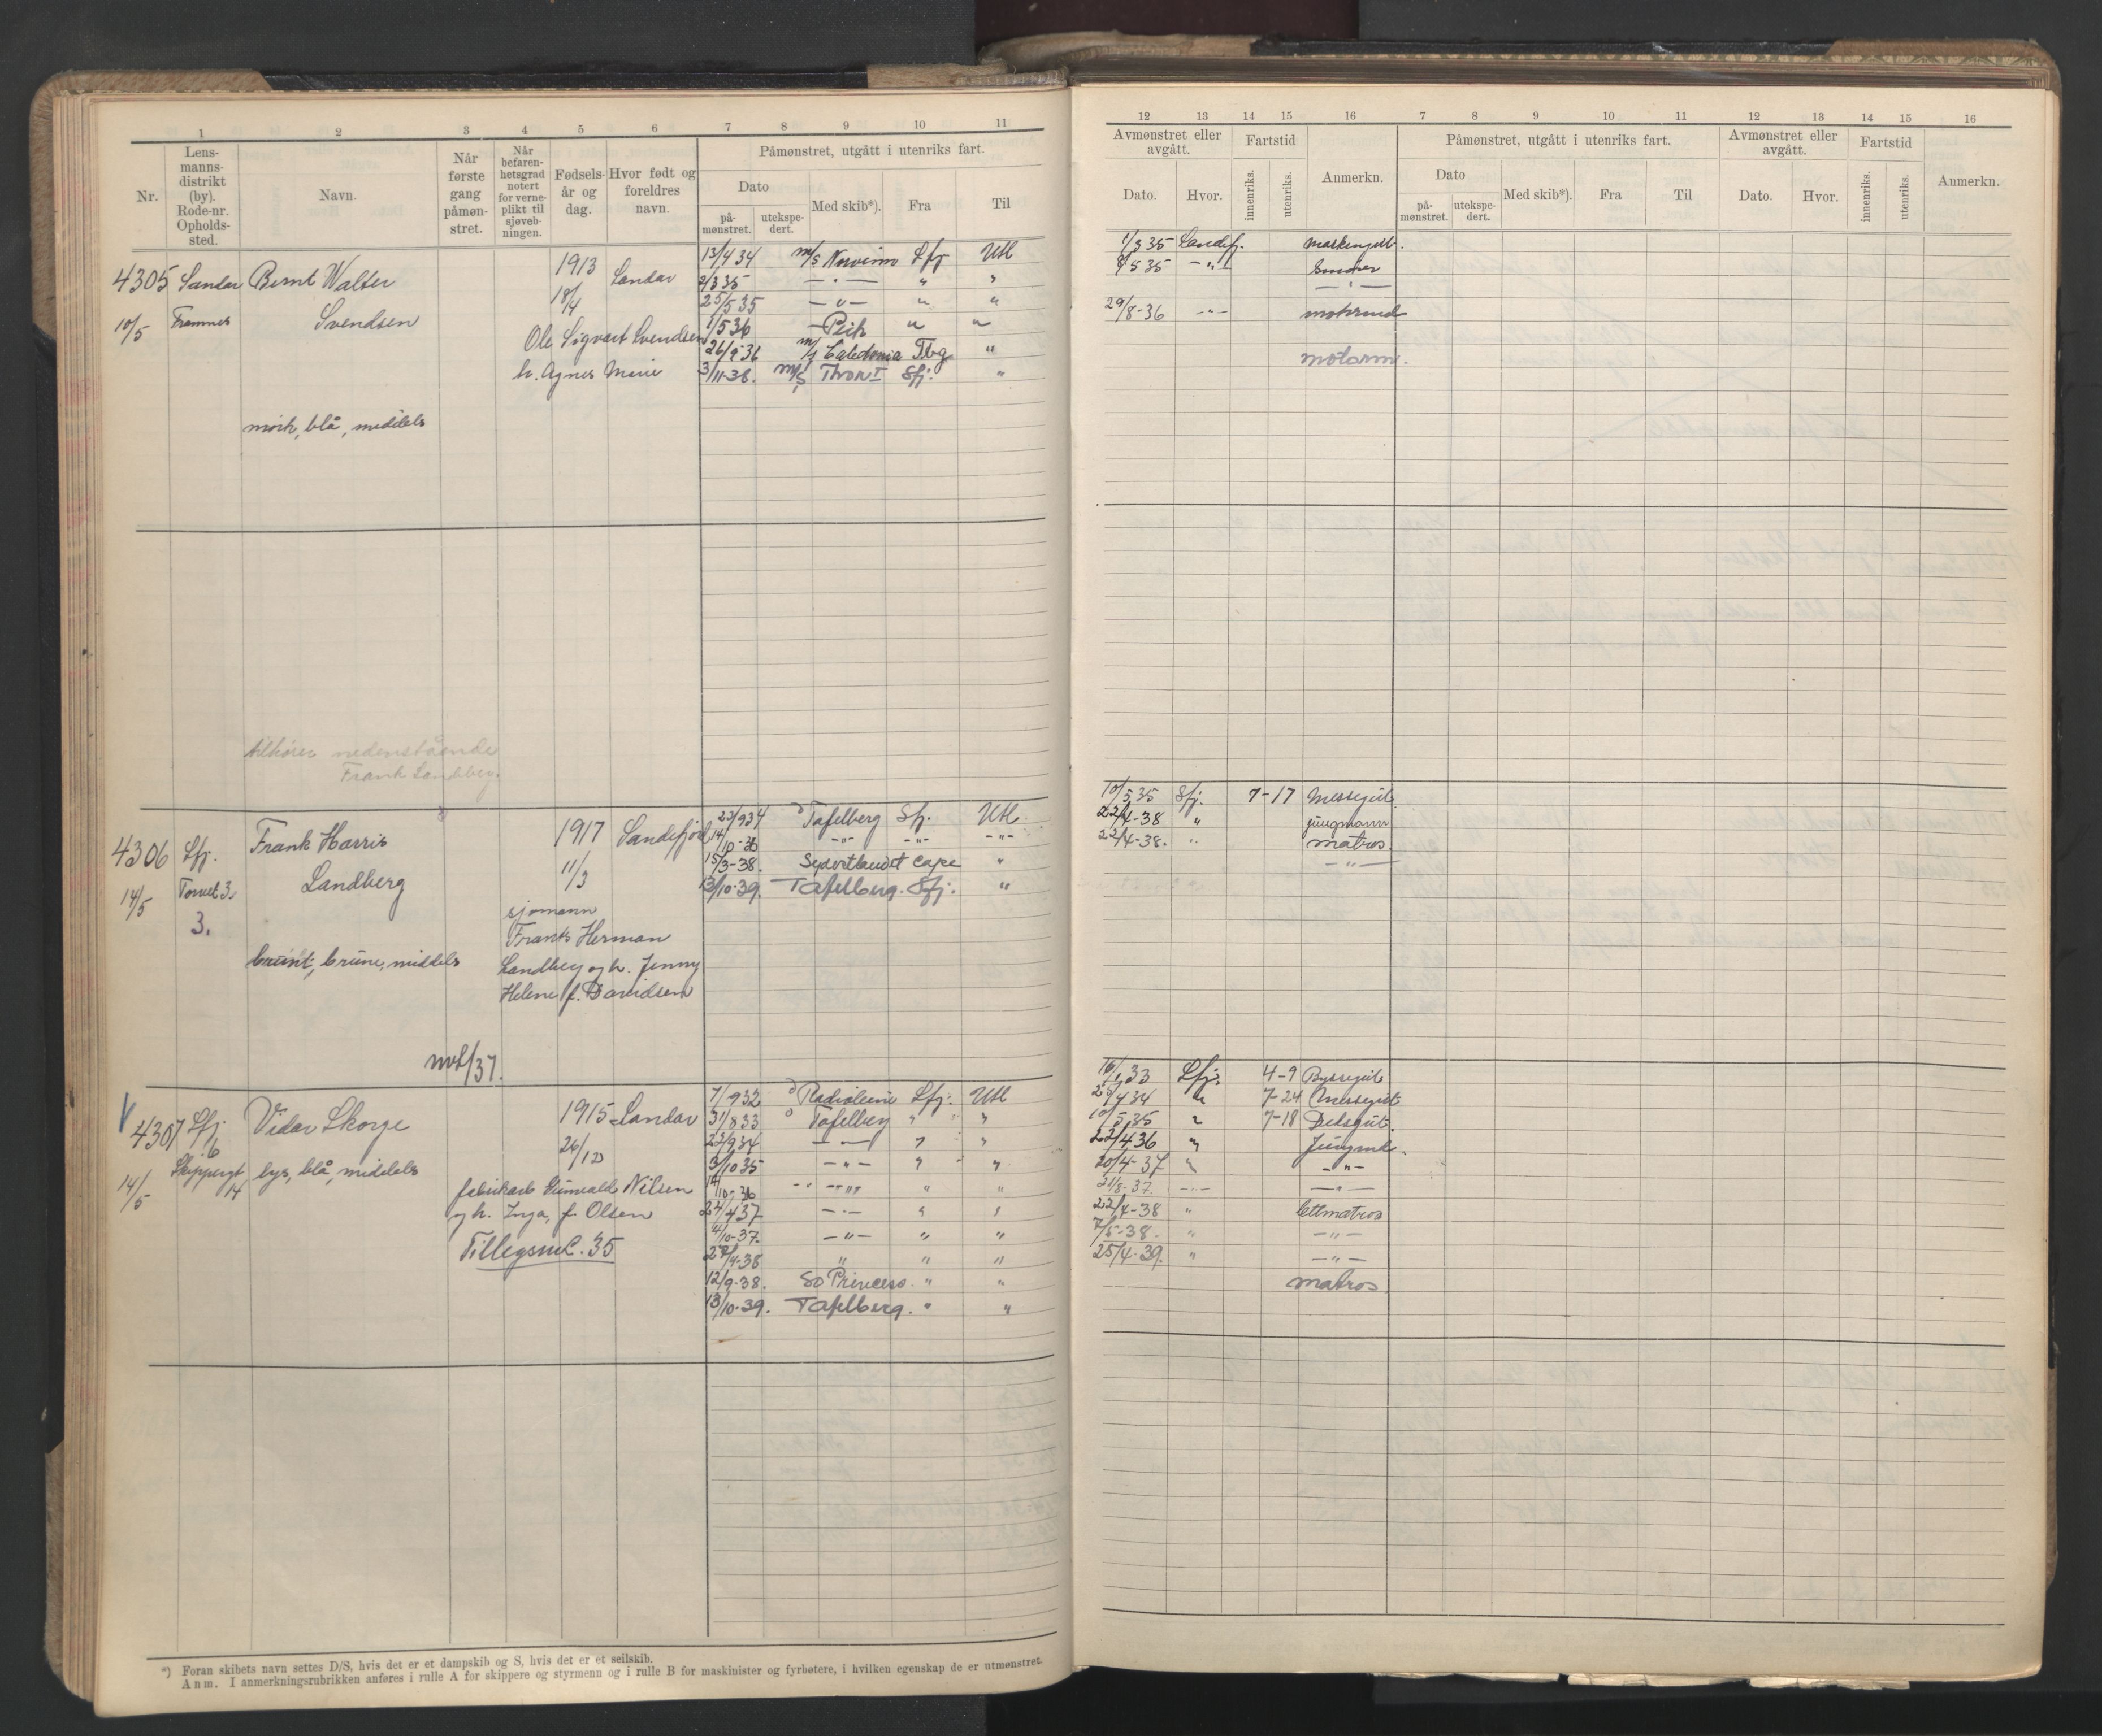 1 2 3 4 5 6 7 8 9 10 11
Nr.
Lens-
manns-
distrikt
(by).
Rode-nr.
Opholds-
sted.
Navn.
Når
første
gang
påmøn-
stret.
Når
befaren-
hetsgrad
notert
for verne-
plikt til
sjøveb-
ningen.
Fødsels-
år og
dag.
Hvor født og
foreldres
navn.
Påmønstret, utgått i utenriks fart.
Dato
på-
mønstret.
utekspe-
dert.
Med skib*).
Fra
Til
4305 Sandar Bernt Walter 1913 Sandar 13/4 34 m/s Sfj Utl
10/5 Svendsen 18/4 2/3 35 — " — " "
25/5 35 — " — " "
Ole Sigvart Svendsen 1/5 36 " "
26/9 36 m/s Caledonia Tbg "
h. Agnes Marie 3/11-38. m/s Thor I Sfj. "
mørk, blå, middels
tilhører nedenstående
Frank Landberg.
4306 Sfj. Frank Harris 1917 Sandefjord 23/9 34 Tafelberg Sfj. Utl
14/5 Torvet 3. Landberg 11/3 14/10-36 -"- -"- -"-
3. 15/3-38. Cape "
13/10-39. Tafelberg. Sfj. "
sjømann
Frank Herman
brunt, brune, middels Landberg og h. Jenny
Helene f. Davidsen
mvl/37.
V 4307 Sfj. Vidar Skorge 1915 Sandar 7/9 32 Radioleine Sfj. Utl
6 26/12 31/8 33 Tafelberg " "
Skippergt 14 lys, blå, middels 23/9 34 — " — " "
14/5 3/10 35 — " — " "
fabrikarb. Nilsen 14/10-36 - " - " "
og h. Inga, f. Olsen 24/4 37 — " — " "
Tillegsrul. 35 4/10-37. — " — " "
27/4-38 " " "
12/9-38. So Princess. " "
13/10-39. Tafelberg. " "
*) Foran skibets navn settes D/S, hvis det er et dampskib og S, hvis det er et seilskib.
Anm. I anmerkningsrubrikken anføres i rulle A for skippere og styrmenn og i rulle B for maskinister og fyrbøtere, i hvilken egenskap de er utmønstret.
12 13 14 15 16 7 8 9 10 11 12 13 14 15 16
Avmønstret eller
avgått.
Dato.
Hvor.
Fartstid
innenriks.
utenriks.
Anmerkn.
Påmønstret, utgått i utenriks fart.
Dato
på-
mønstret.
utekspe-
dert.
Med skib*).
Fra
Til
Avmønstret eller
avgått.
Dato.
Hvor.
Fartstid
innenriks.
utenriks.
Anmerkn.
1/3 35 Sandefj. maskingutt.
8/5 35 — " — Smører
— " —
29/8-36 - " - motormd
motorm.
10/5 35 Sfj. 7-17 Messegut.
22/4-38 " jungmann
22/4-38. " matros.
— " —
16/1 33 Sfj. 4-9 Byssegut
25/4 34 " 7-24 Messegut
10/5 35 " 7-18 Deksgut.
22/4 36 " Jungmd.
20/4-37 " - " -
21/8-37. - " - — " —
22/4-38 " lettmatros
7/5-38. " — " —
25/4-39. " — " —
matros.